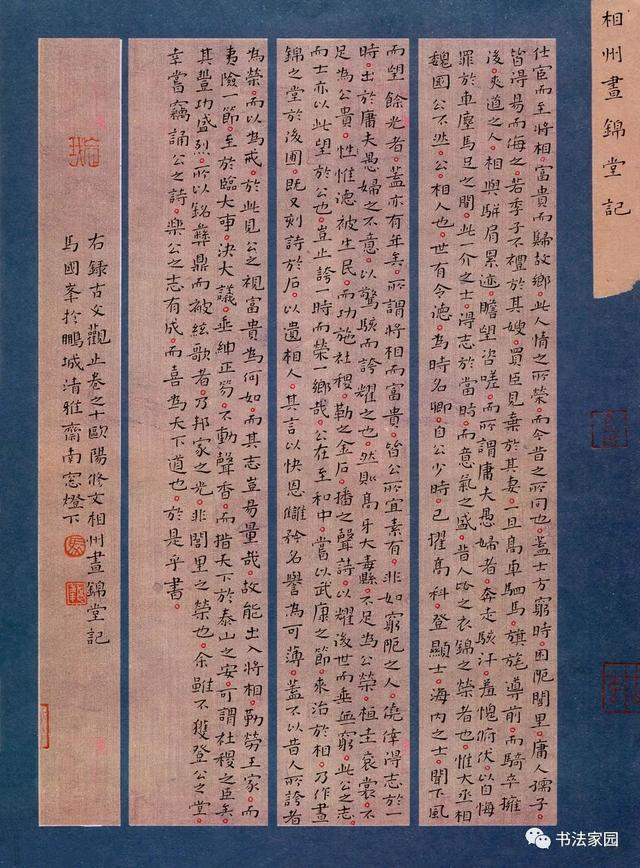 相州晝錦堂記
仕宦而至將相。富貴而歸故鄉。此人情之所榮。而今昔之所同也。蓋士方窮時。困阨閭里。庸人孺子。
皆得易而侮之。若季子不禮於其嫂。買臣見棄於其妻。一旦高車駟馬。旗旄導前。而騎卒擁
後。夾道之人。相與駢肩累迹。瞻望咨嗟。而所謂庸夫愚婦者。奔走駭汗。羞愧俯伏。以自悔
罪於車塵馬足之間。此一介之士。得志於當時。而意氣之盛。昔人比之衣錦之榮者也。惟大丞相
魏國公不然。公相人也。世有令德。為時名卿。自公少時。已擢高科。登顯士。海內之士。聞下風
而望餘光者。蓋亦有年矣。所謂將相而富貴。皆公所宜素有。非如窮阨之人。僥倖得志於一
時。出於庸夫愚婦之不意。以驚駭而誇耀之也。然則高牙大纛。不足為公榮。桓圭袞裳。不
足為公貴。性惟德被生民。而功施社稷。勒之金石。播之聲詩。以耀後世而垂無窮。此公之志
而士亦以此望於公也。豈止誇一時而榮一鄉哉。公在至和中。嘗以武康之節。來治於相。乃作晝
錦之堂於後圃。既又刻詩於石。以遺相人。其言以快恩讎矜名譽為可薄。蓋不以昔人所誇者
為榮。而以為戒。於此見公之視富貴為何如。而其志豈易量哉。故能出入將相。勤勞王家。而
夷險一節。至於臨大事。決大議。垂紳正笏。不動聲色。而措天下於泰山之安。可謂社稷之臣矣
其豐功盛烈。所以銘彝鼎而被絃歌者。乃邦家之光。非閭里之榮也。余雖不獲登公之堂
幸嘗竊誦公之詩。樂公之志有成。而喜為天下道也。於是乎書。
右錄古文觀止卷之十歐陽修文相州晝錦堂記
馬國峯於鵬城清雅齋南窓燈下
书法家园